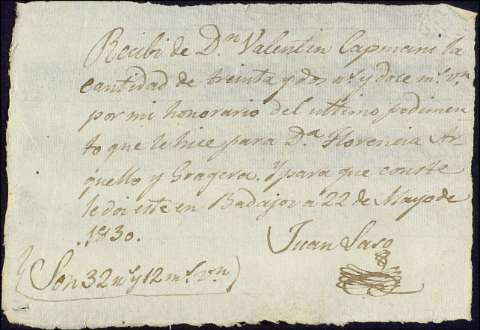 Recibi de D.ⁿ Valentin Capmani la
cantidad de treinta y dos r.ˢ y doce m.ˢ v.ⁿ
por mi honorario del ultimo pedimen
to que le hice para D.ª Florencia Ar
guello y Gragera. Y para que conste
le doy este en Badajoz a 22 de Mayo de
1830.
Juan Laso
Son 32 r.ˢ y 12 m.ˢ v.ⁿ